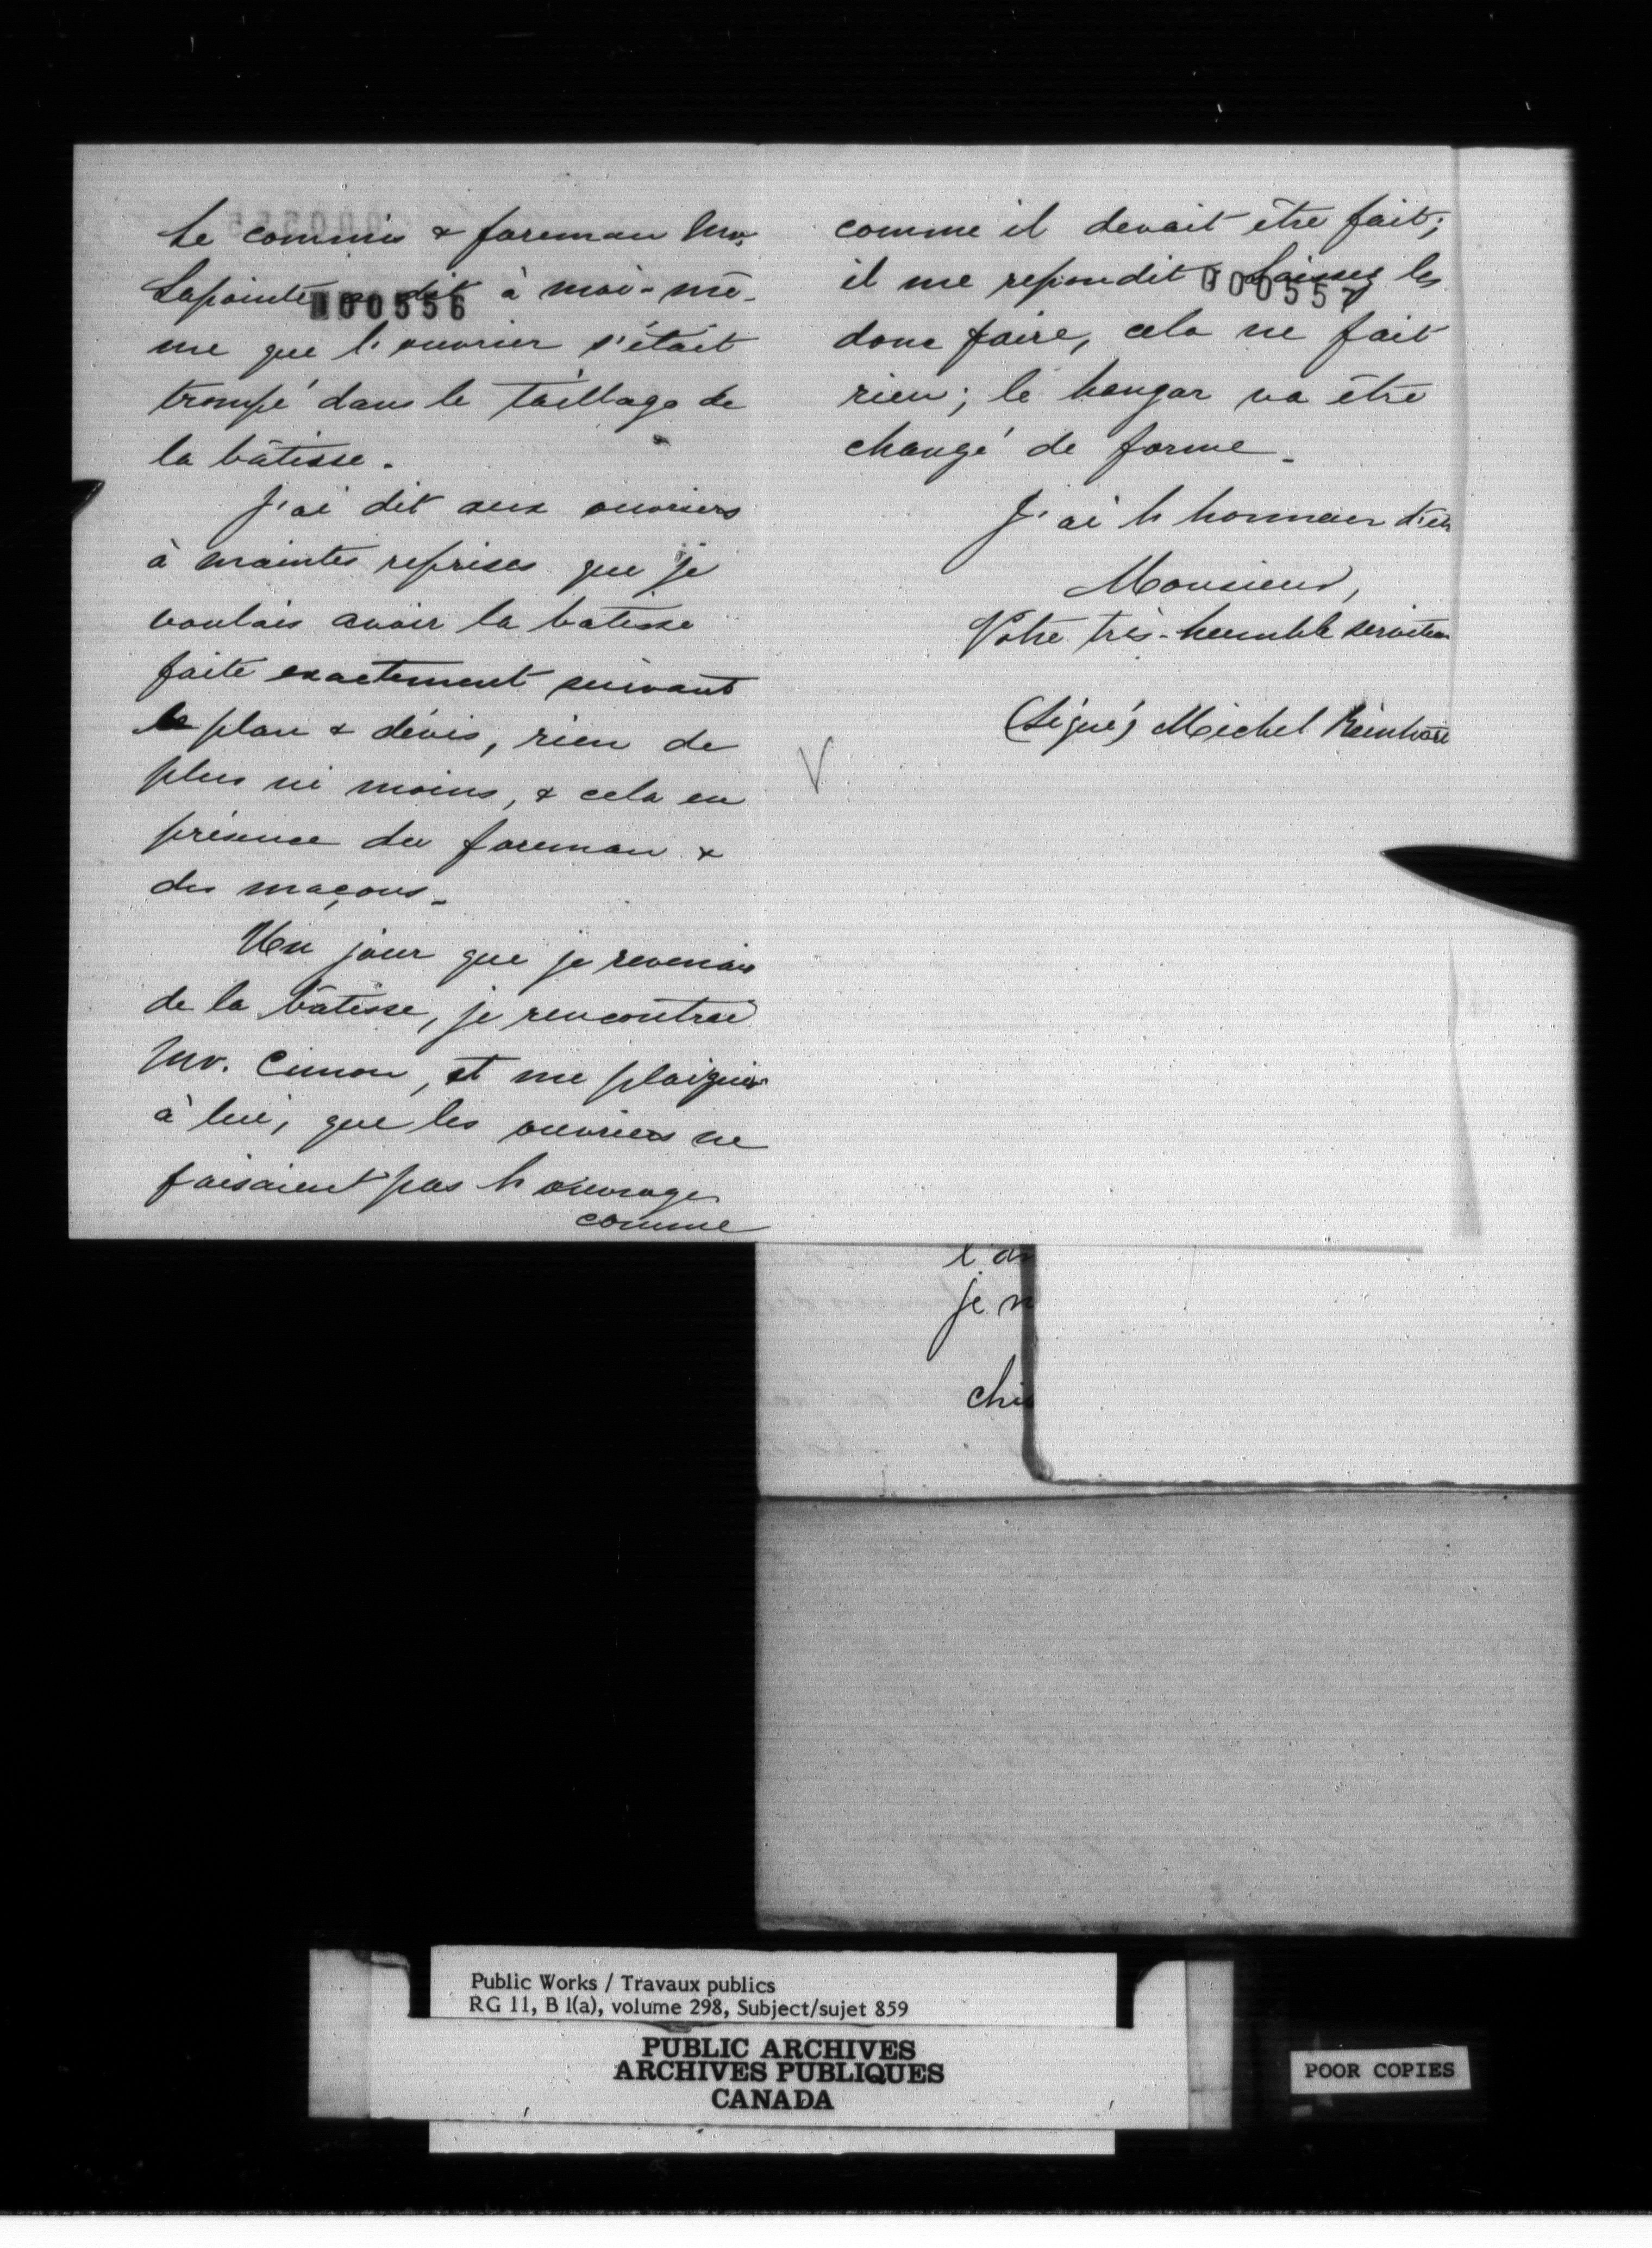 Le commis & foreman Mr.
Lapointe a dit à moi-mê-
me que l'ouvrier s'était
trompé dans le taillage de
la bâtisse.
J'ai dit aux ouvriers
à maintes reprises que je
voulais avoir la batisse
faite exactement suivant
le plan & dévis, rien de
plus ni moins, & cela en
présence du foreman &
des maçons.
Un jour que je revenais
de la bâtisse, je rencontrai
Mr. Cimon, et me plaignis
à lui, que les ouvriers ne
faisaient pas l'ouvrage
comme
000556
comme il devait être fait;
il me repondit Laissez les
donc faire, cela ne fait
rien; le hangar va être
changé de forme.
J'ai l'honneur d'êt
Monsieur,
Votre très-humble serviteur
(Signé) Michel
000557
je n
chi
Public Works / Travaux publics
RG 11, B 1(a), volume 298, Subject/sujet 859
PUBLIC ARCHIVES
ARCHIVES PUBLIQUES
CANADA
POOR COPIES